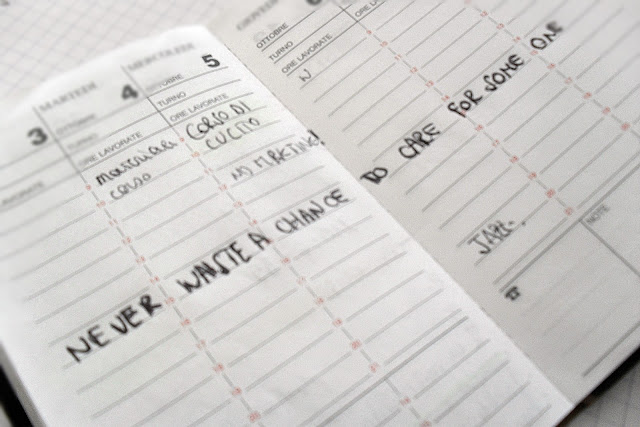 MARTEDÌ
MERCOLEDÌ
3
OTTOBRE
TURNO
4
OTTOBRE
TURNO
ORE LAVORATE
5
ORE LAVORATE
CORSO DI
CUCITO
corso
OTTOBRE
TURNO
ORE LAVORATE
N
NEVER WASTE A CHANCE TO CARE FOR SOME ONE
JAZZ.
NOTE